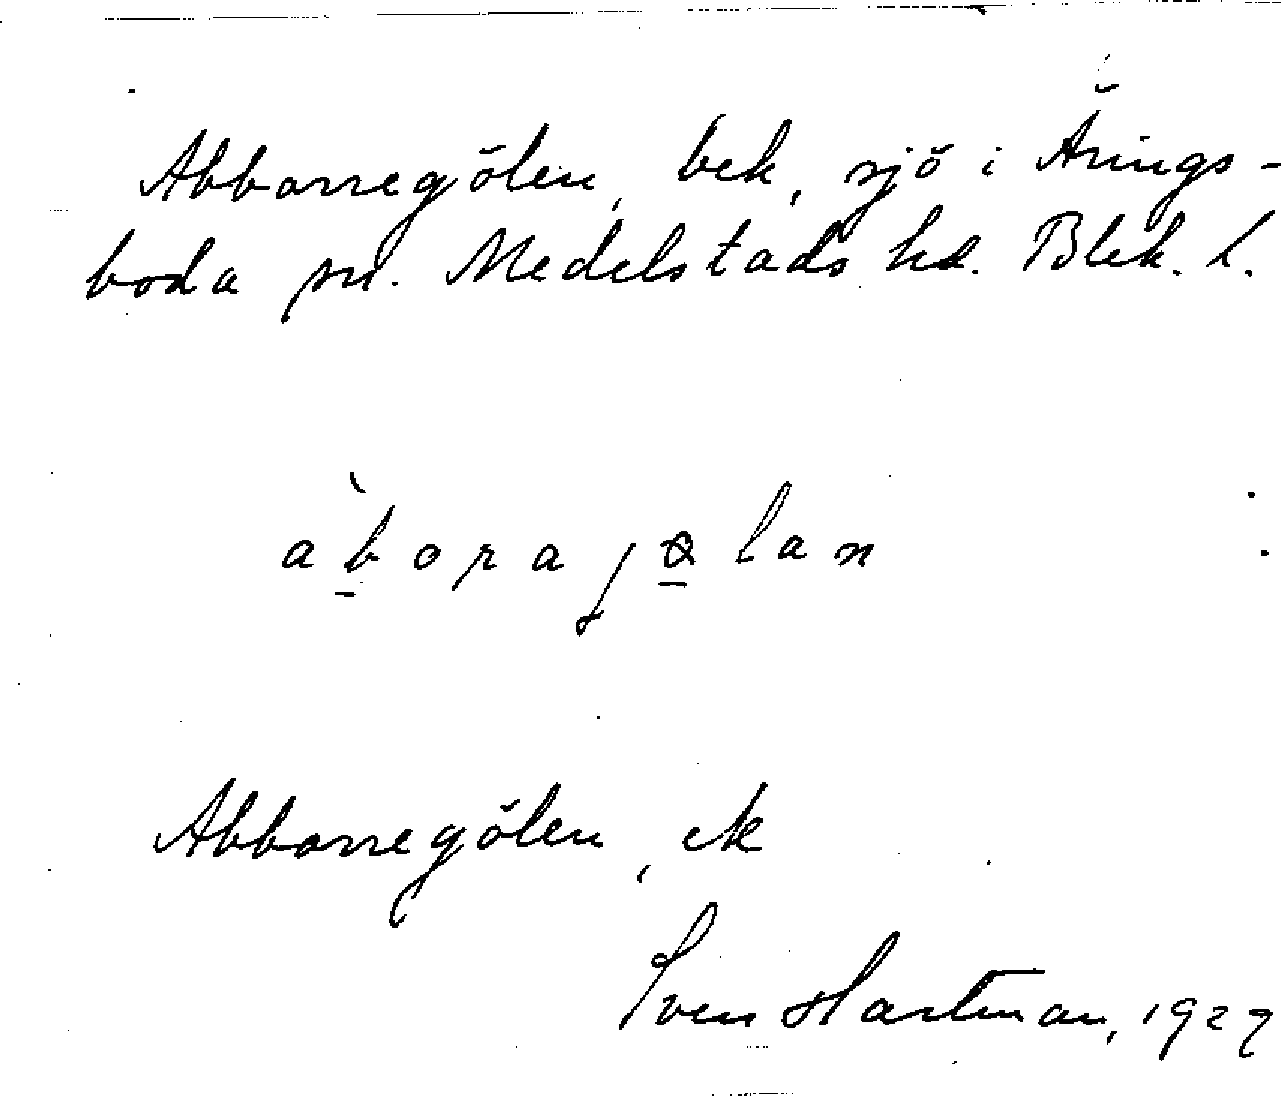 Abborregölen, bek, sjö i Årings-
boda sn. Medelstads hd. Blek. l.
àboragølan
Abborregölen, ek
Sven Hartman, 1927